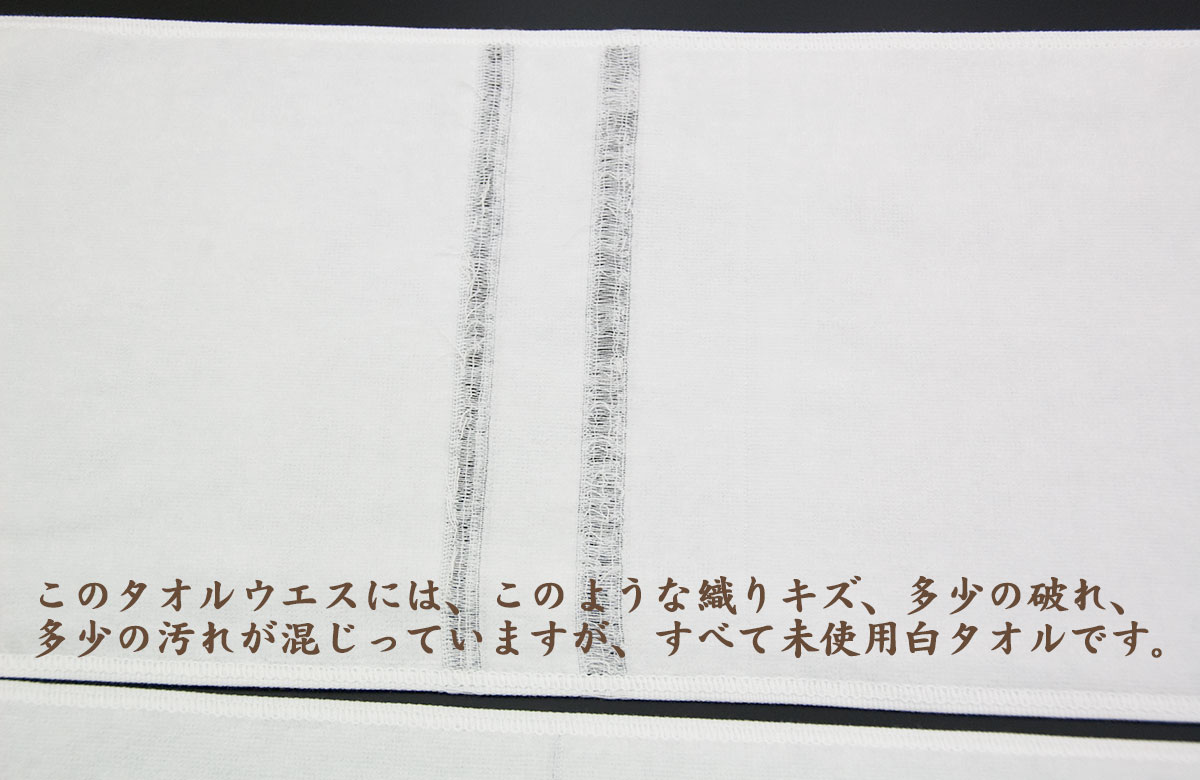 このタオルウエスには、このような織りキズ、多少の破れ、
多少の汚れが混じっていますが、すべて未使用白タオルです。